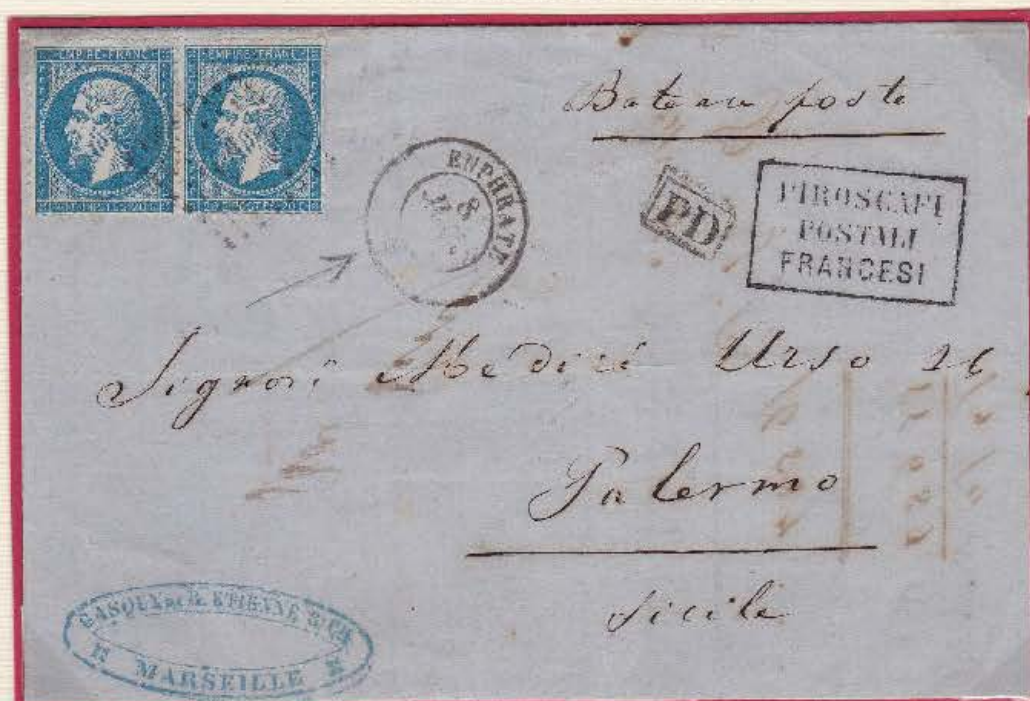 EMPIRE·FRANC EMPIRE·FRANC
Bateau poste
EUPHRATE
8
PD
PIROSCAFI
POSTALI
FRANCESI
Signori Urso
Palermo
Sicile
ETIENNE & CIE
MARSEILLE